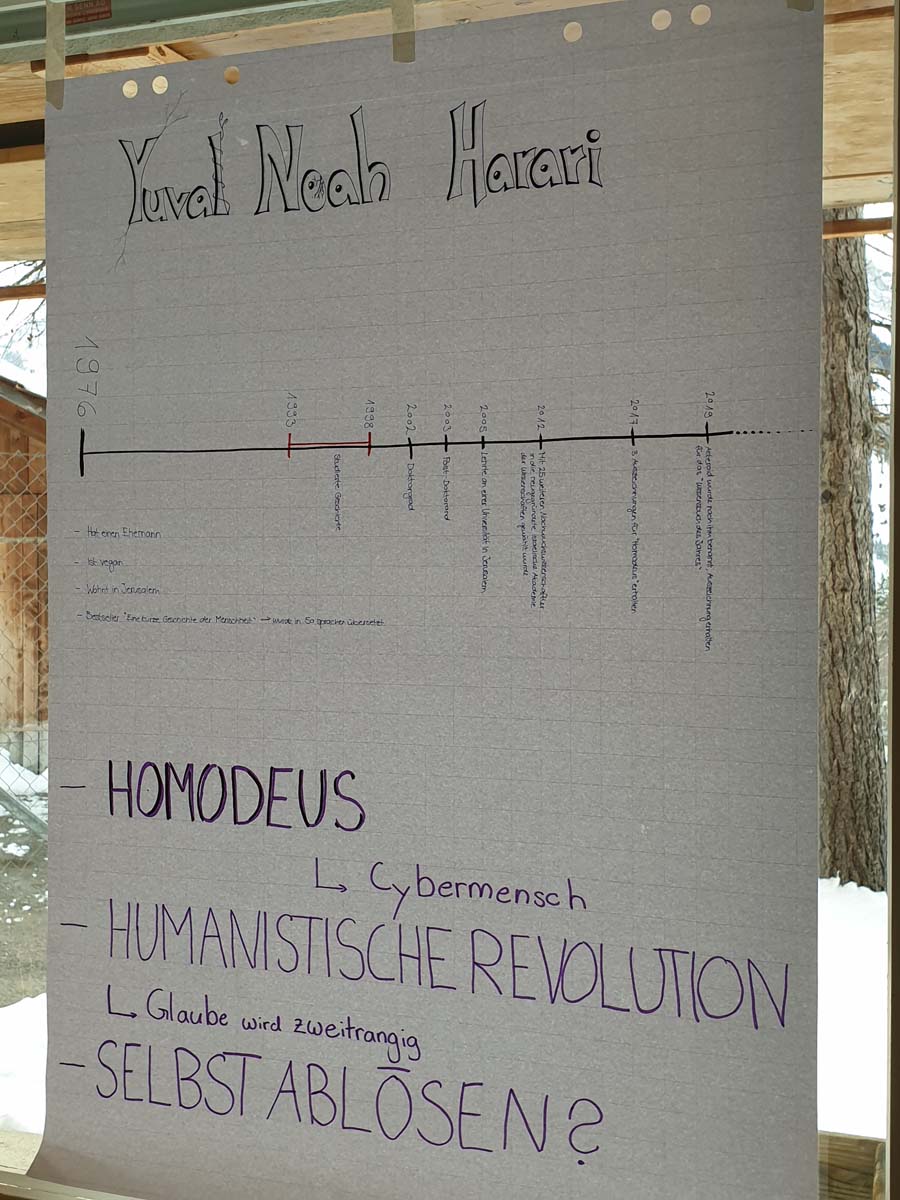 Yuval Noah Harari
1976
1993
1998
Studierte Geschichte
2002
Doktorgrad
2003
Post-Doktorand
2005
Lehrte an einer Universität in Jerusalem
2012
Mit 25 weiteren Nachwuchswissenschaftler
in die neugegründete Israelische Akademie
der Wissenschaften gewählt wurde
2017
3 Auszeichnungen für "Homodeus" erhalten
2019
Asteroid wurde nach ihm benannt, Auszeichnung erhalten
für das "Wissensbuch des Jahres"
- Hat einen Ehemann
- Ist vegan
- Wohnt in Jerusalem
- Bestseller "Eine kurze Geschichte der Menschheit" → wurde in 50 sprachen übersetzt
- HOMODEUS
↳ Cybermensch
- HUMANISTISCHE REVOLUTION
↳ Glaube wird zweitrangig
- SELBST ABLÖSEN?